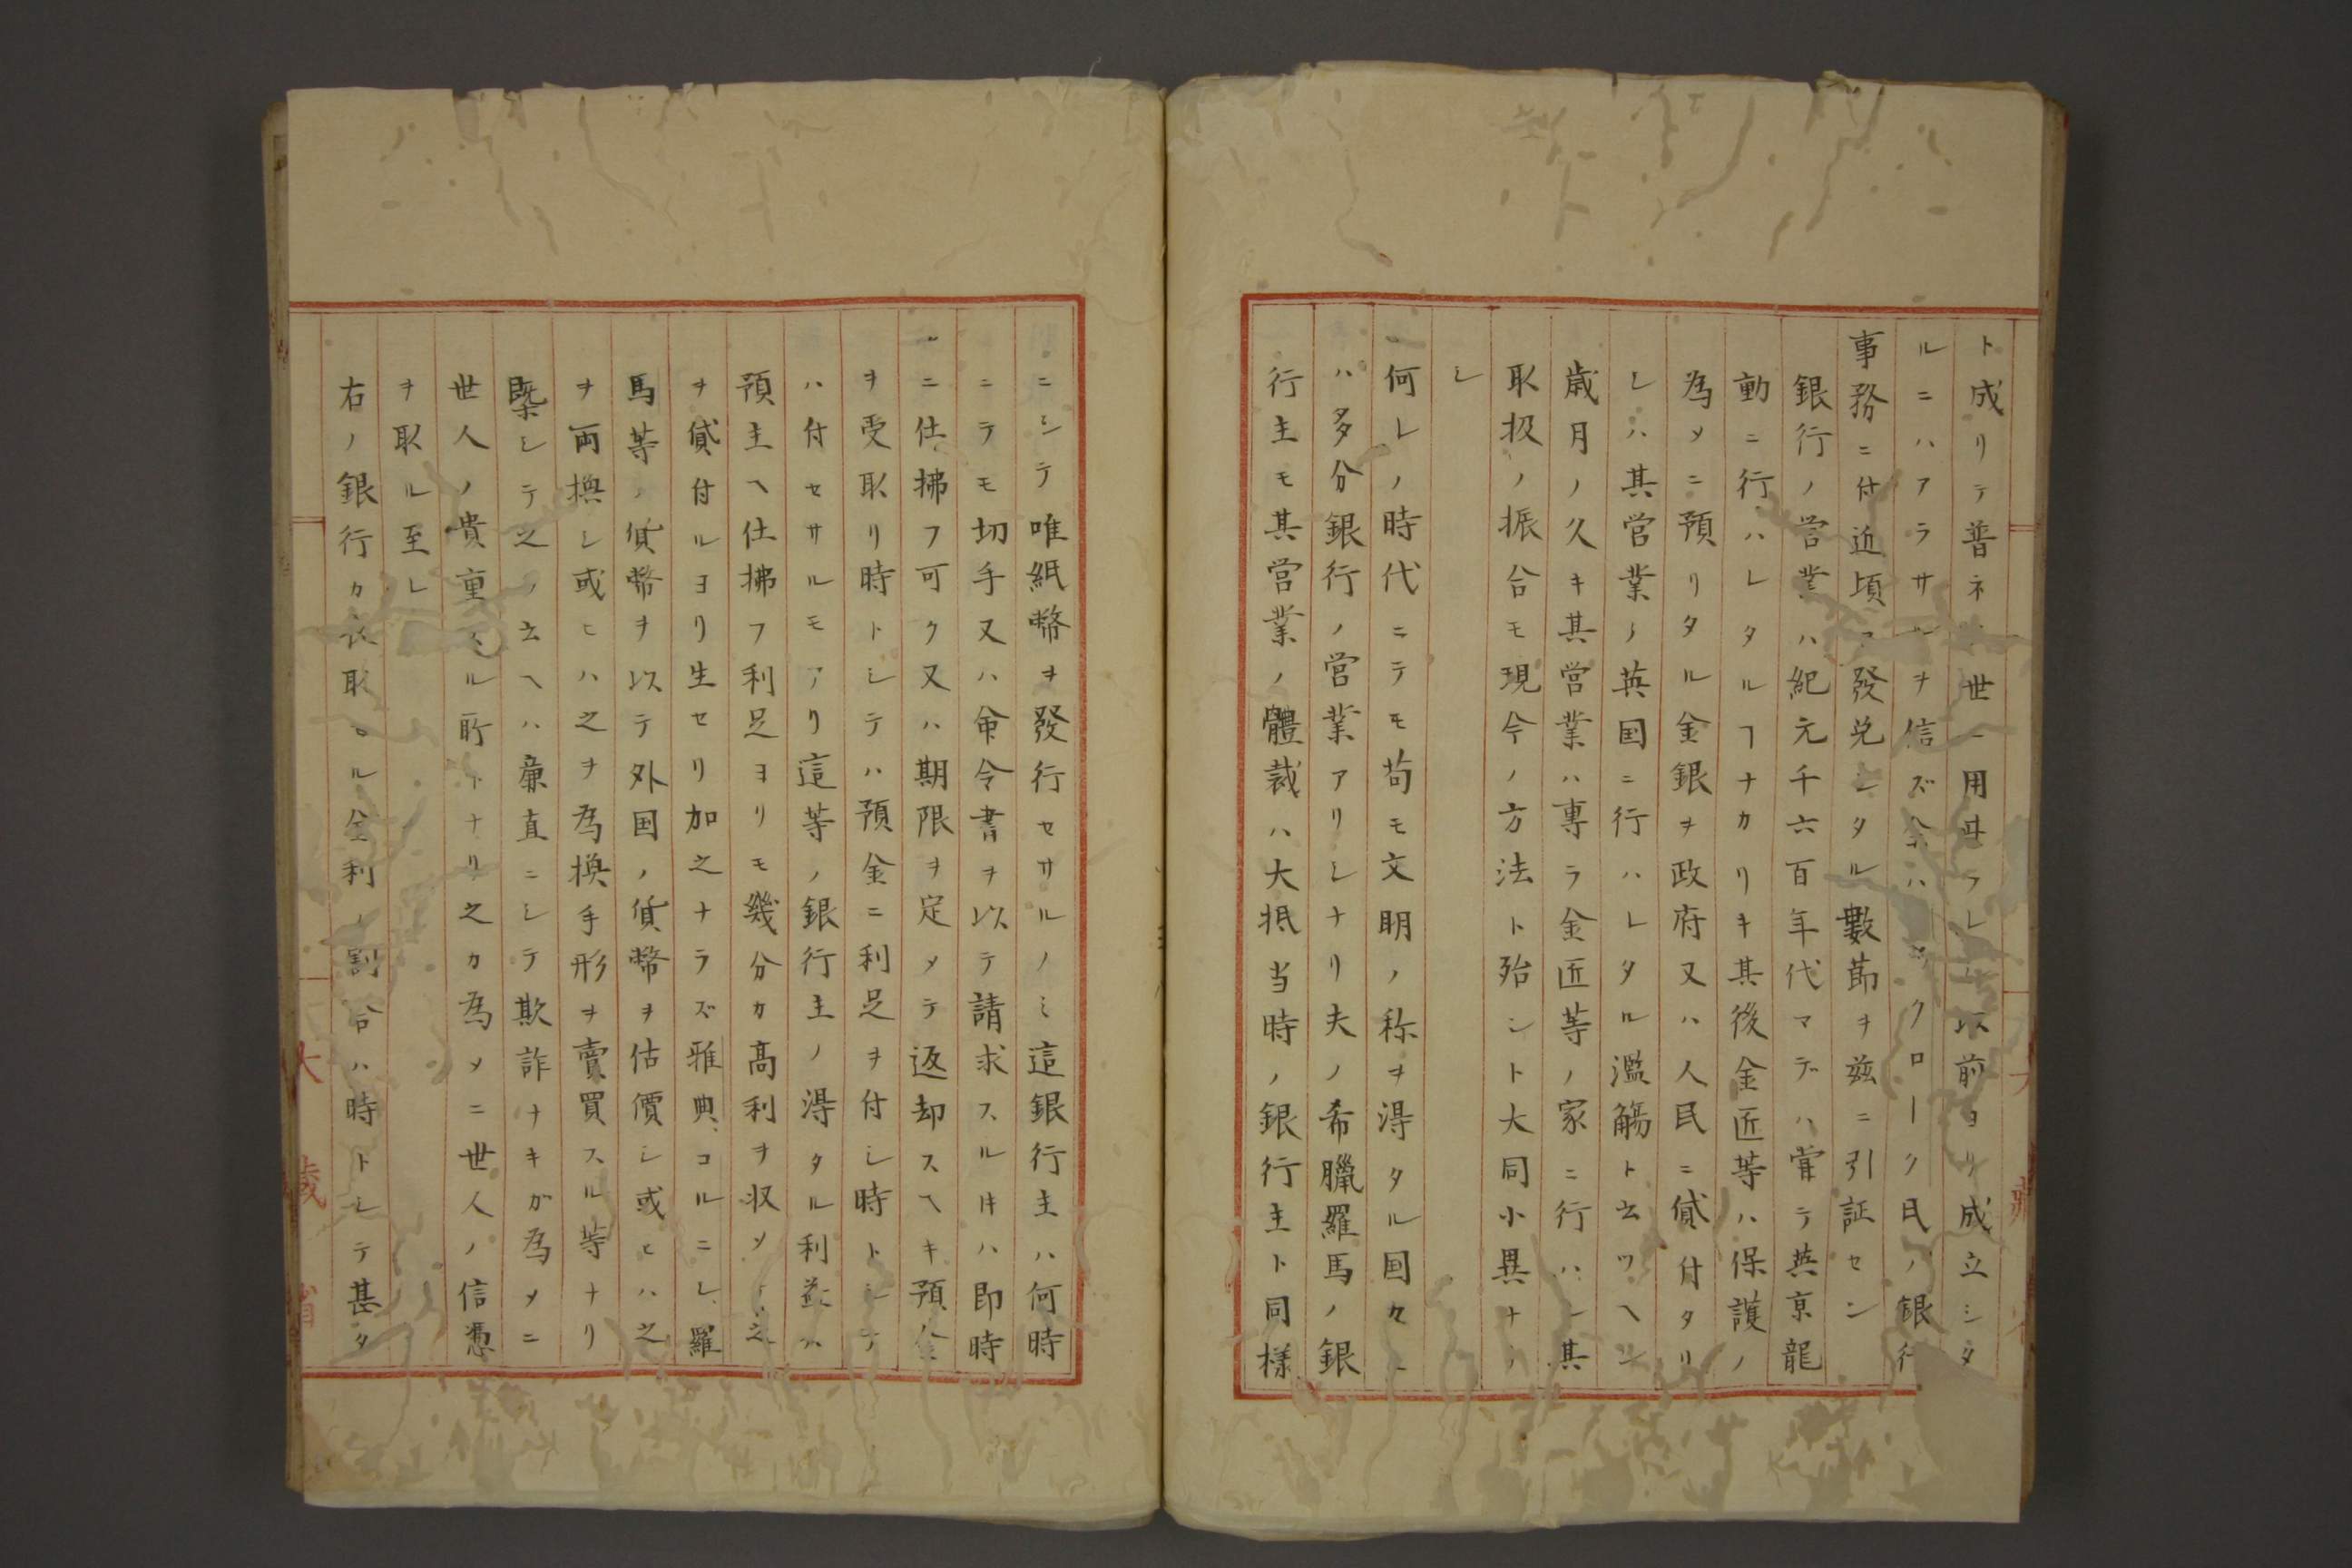 ト成リテ普ネ世ニ用ヰラレ以前ヨリ成立シタ
ルニハアラサルヲ信ズ余ハクローク氏ノ銀行
事務ニ付近頃發兌シタル數節ヲ玆ニ引証セン
銀行ノ営業ハ紀元千六百年代マデハ甞テ英京龍
動ニ行ハレタルヿナカリキ其後金匠等ハ保護ノ
為メニ預リタル金銀ヲ政府又ハ人民ニ貸付タリ
レハ其営業ノ英国ニ行ハレタル濫觴ト云ツヘシ
歳月ノ久キ其営業ハ專ラ金匠等ノ家ニ行ハレ其
取扱ノ振合モ現今ノ方法ト殆ント大同小異ナリ
シ
何レノ時代ニテモ苟モ文明ノ称ヲ得タル国々ニ
ハ多分銀行ノ営業アリシナリ夫ノ希臘羅馬ノ銀
行主モ其営業ノ體裁ハ大抵当時ノ銀行主ト同様
ニシテ唯紙幣ヲ發行セサルノミ這銀行主ハ何時
ニテモ切手又ハ命令書ヲ以テ請求スル井ハ即時
ニ仕拂フ可ク又ハ期限ヲ定メテ返却スヘキ預金
ヲ受取リ時トシテハ預金ニ利足ヲ付シ時トシテ
ハ付セサルモアリ這等ノ銀行主ノ得タル利益ハ
預主ヘ仕拂フ利足ヨリモ幾分カ高利ヲ収メ之
ヲ貸付ルヨリ生セリ加之ナラズ雅典コルニシ羅
馬等ノ貨幣ヲ以テ外国ノ貨幣ヲ估價シ或ヒハ之
ヲ両換シ或ヒハ之ヲ為換手形ヲ賣買スル等ナリ
槩シテ之ノ云ヘハ廉直ニシテ欺詐ナキガ為メニ
世人ノ貴重スル所トナリ之カ為メニ世人ノ信憑
ヲ取ル至レ
右ノ銀行カ取ル金利ノ割合ハ時トシテ甚タ
大藏省